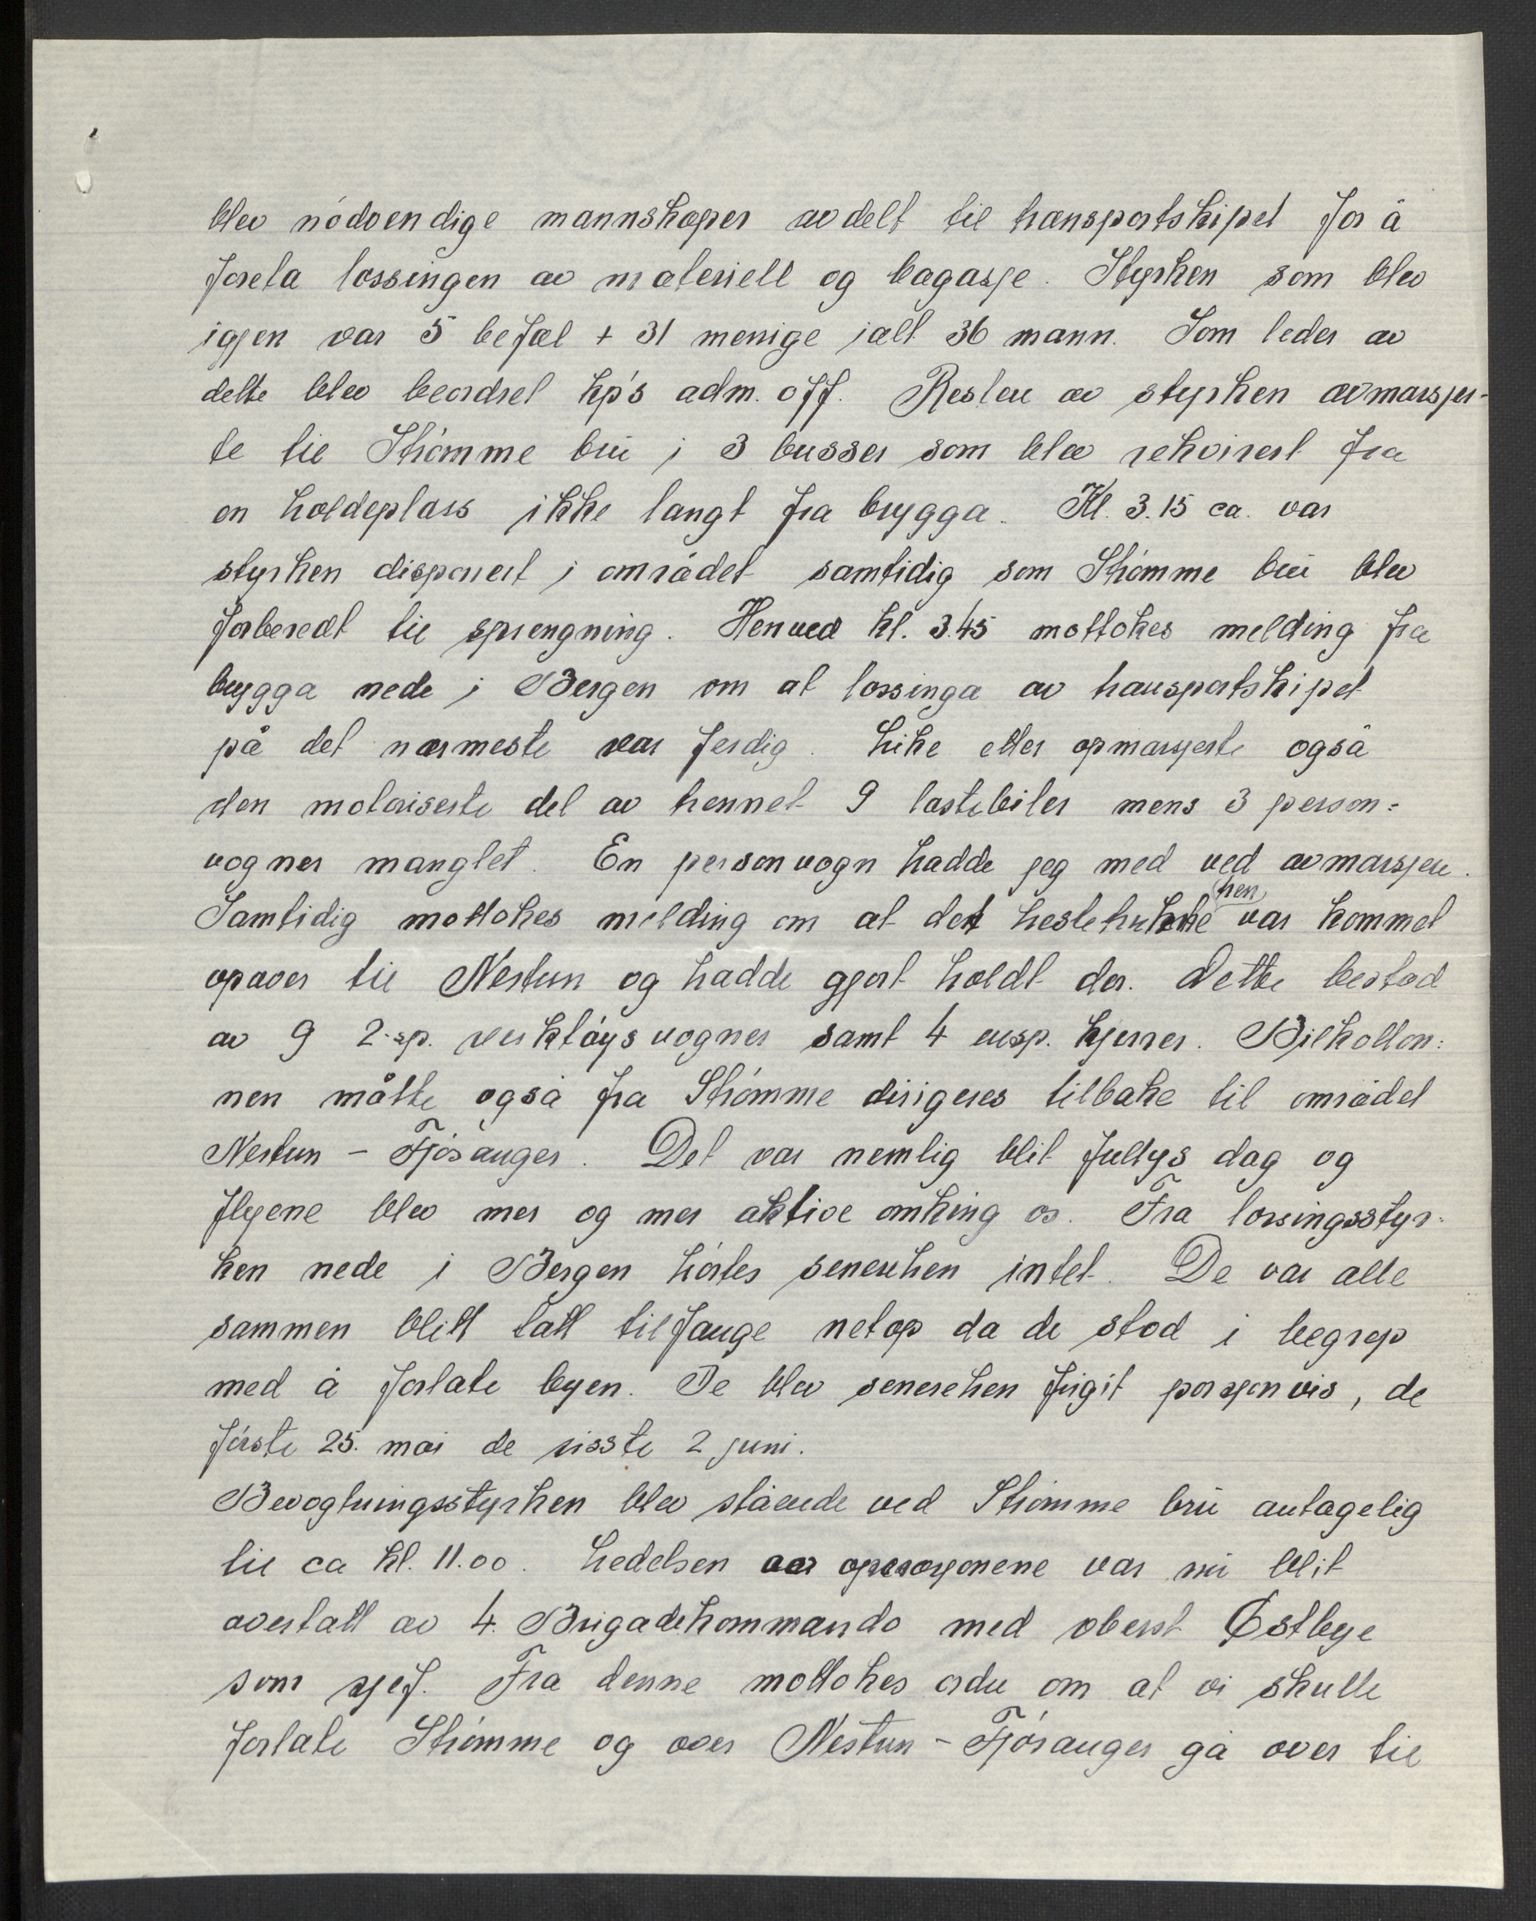 blev nødvendige mannskaper avdelt til transportskipet for å
foreta lossingen av materiell og bagasje. Styrken som blev
igjen var 5 befal + 31 menige ialt 36 mann. Som leder av
dette blev beordret kp's adm. off. Resten av styrken avmarsjer-
te til Strømme bru i 3 busser som blev rekvirert fra
en holdeplass ikke langt fra brygga. Kl. 3.15 ca. var
styrken disponert i området samtidig som Strømme bru blev
forberedt til sprengning. Henved kl. 3.45 mottokes melding fra
brygga nede i Bergen om at lossinga av transportskipet
på det nærmeste var ferdig. Like etter opmarsjerte også
den motoriserte del av trennet 9 lastebiler mens 3 person=
vogner manglet. En personvogn hadde jeg med ved avmarsjen.
Samtidig mottokes melding om at det hestetrukkne (tren) var kommet
opover til Nestun og hadde gjort holdt der. Dette bestod
av 9 2-sp. verktøysvogner samt 4 ensp. kjerrer. Bilkollon=
nen måtte også fra Strømme dirigeres tilbake til området
Nestun - Fjøsanger. Det var nemlig blit fullys dag og
flyene blev mer og mer aktive omkring os. Fra lossingsstyr=
ken nede i Bergen hørtes senerehen intet. De var alle
sammen blitt tatt tilfange netop da de stod i begrep
med å forlate byen. De blev senerehen frigit porsjonvis, de
første 25. mai de sisste 2 juni.
Bevogtningsstyrken blev stående ved Strømme bru antagelig
til ca kl. 11.00. Ledelsen av operasjonene var nu blit
overtatt av 4. Brigadekommando med oberst Østbye
som sjef. Fra denne mottokes ordre om at vi skulle
forlate Strømme og over Nestun - Fjøsanger gå over til